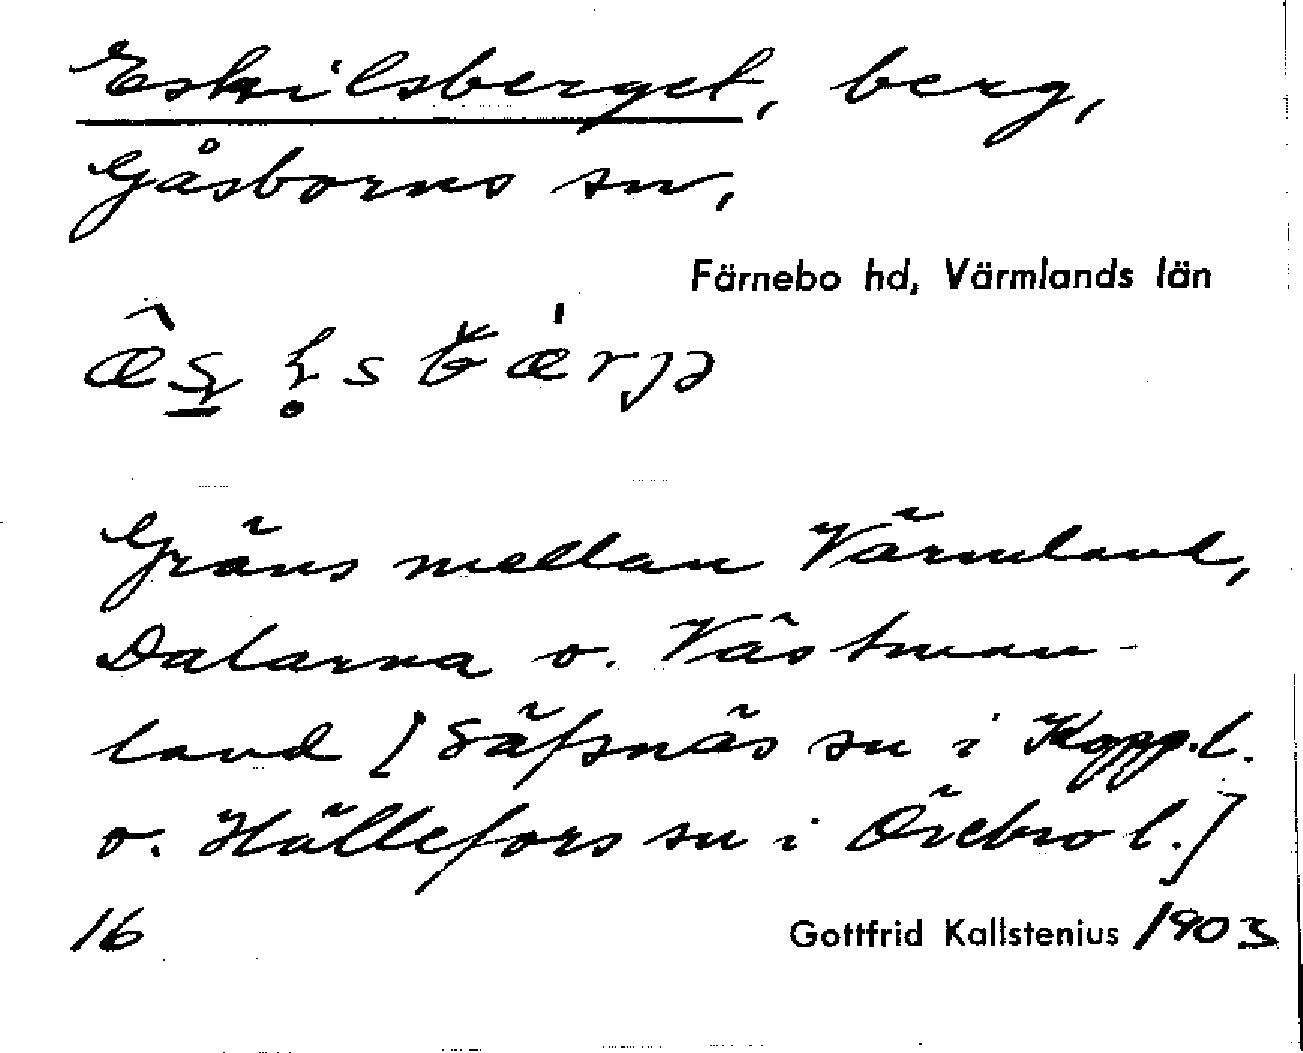 Eskilsberget, berg,
Gåsborns sn,
Färnebo hd, Värmlands län
Gräns mellan Värmland,
Dalarna o. Västman-
land [Säfsnäs sn i Kopp.l.
o. Hällefors sn i Örebro l.]
16
Gottfrid Kallstenius 1903